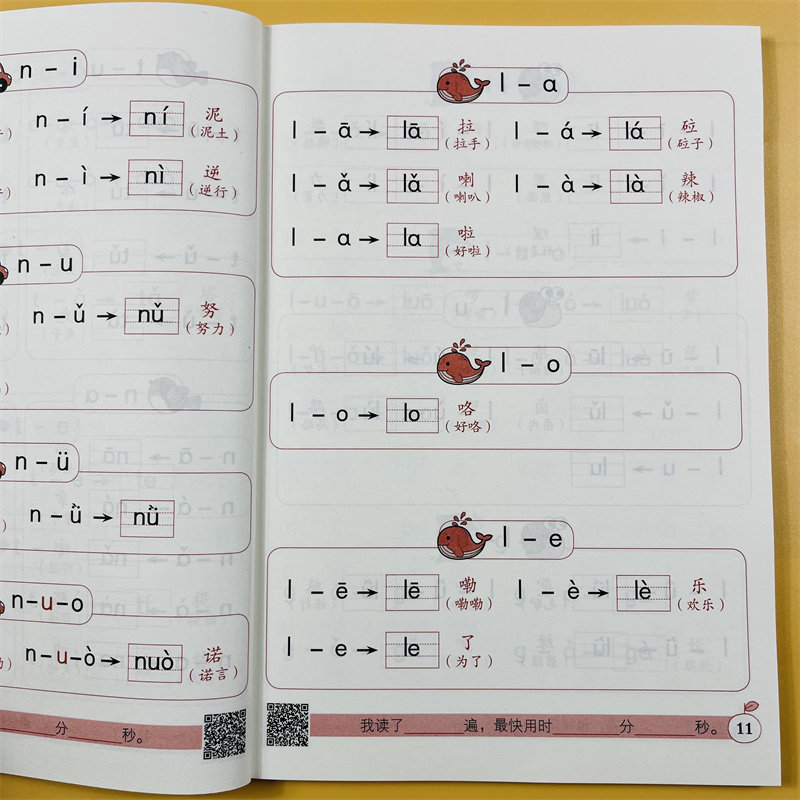 n – i
n – í → ní 泥
(泥土)
n – ì → nì 逆
(逆行)
n – u
n – ǔ → nǔ 努
(努力)
n – ü
n – ǜ → nǜ
n-u-o
n-u-ò → nuò 诺
(诺言)
分______秒。
l – a
l – ā → lā 拉 l – á → lá 砬
(拉手) (砬子)
l – ǎ → lǎ 喇 l – à → là 辣
(喇叭) (辣椒)
l – a → la 啦
(好啦)
l – o
l – o → lo 咯
(好咯)
l – e
l – ē → lē 嘞 l – è → lè 乐
(嘞嘞) (欢乐)
l – e → le 了
(为了)
我读了______遍，最快用时______分______秒。 11